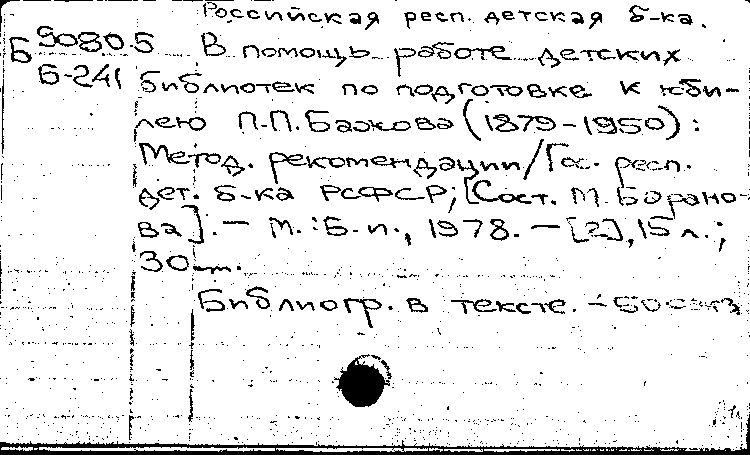 Российская респ. детская б-ка.
Б 90805 В помощь работе детских
Б-241 библиотек по подготовке к юби-
лею П.П.Бажова (1879-1950):
Метод. рекомендации/Гос. респ.
дет. б-ка РСФСР; [Сост. М. Барано-
ва]. — М.: Б.и., 1978. — [2], 15 л.;
30 см.
Библиогр. в тексте. —